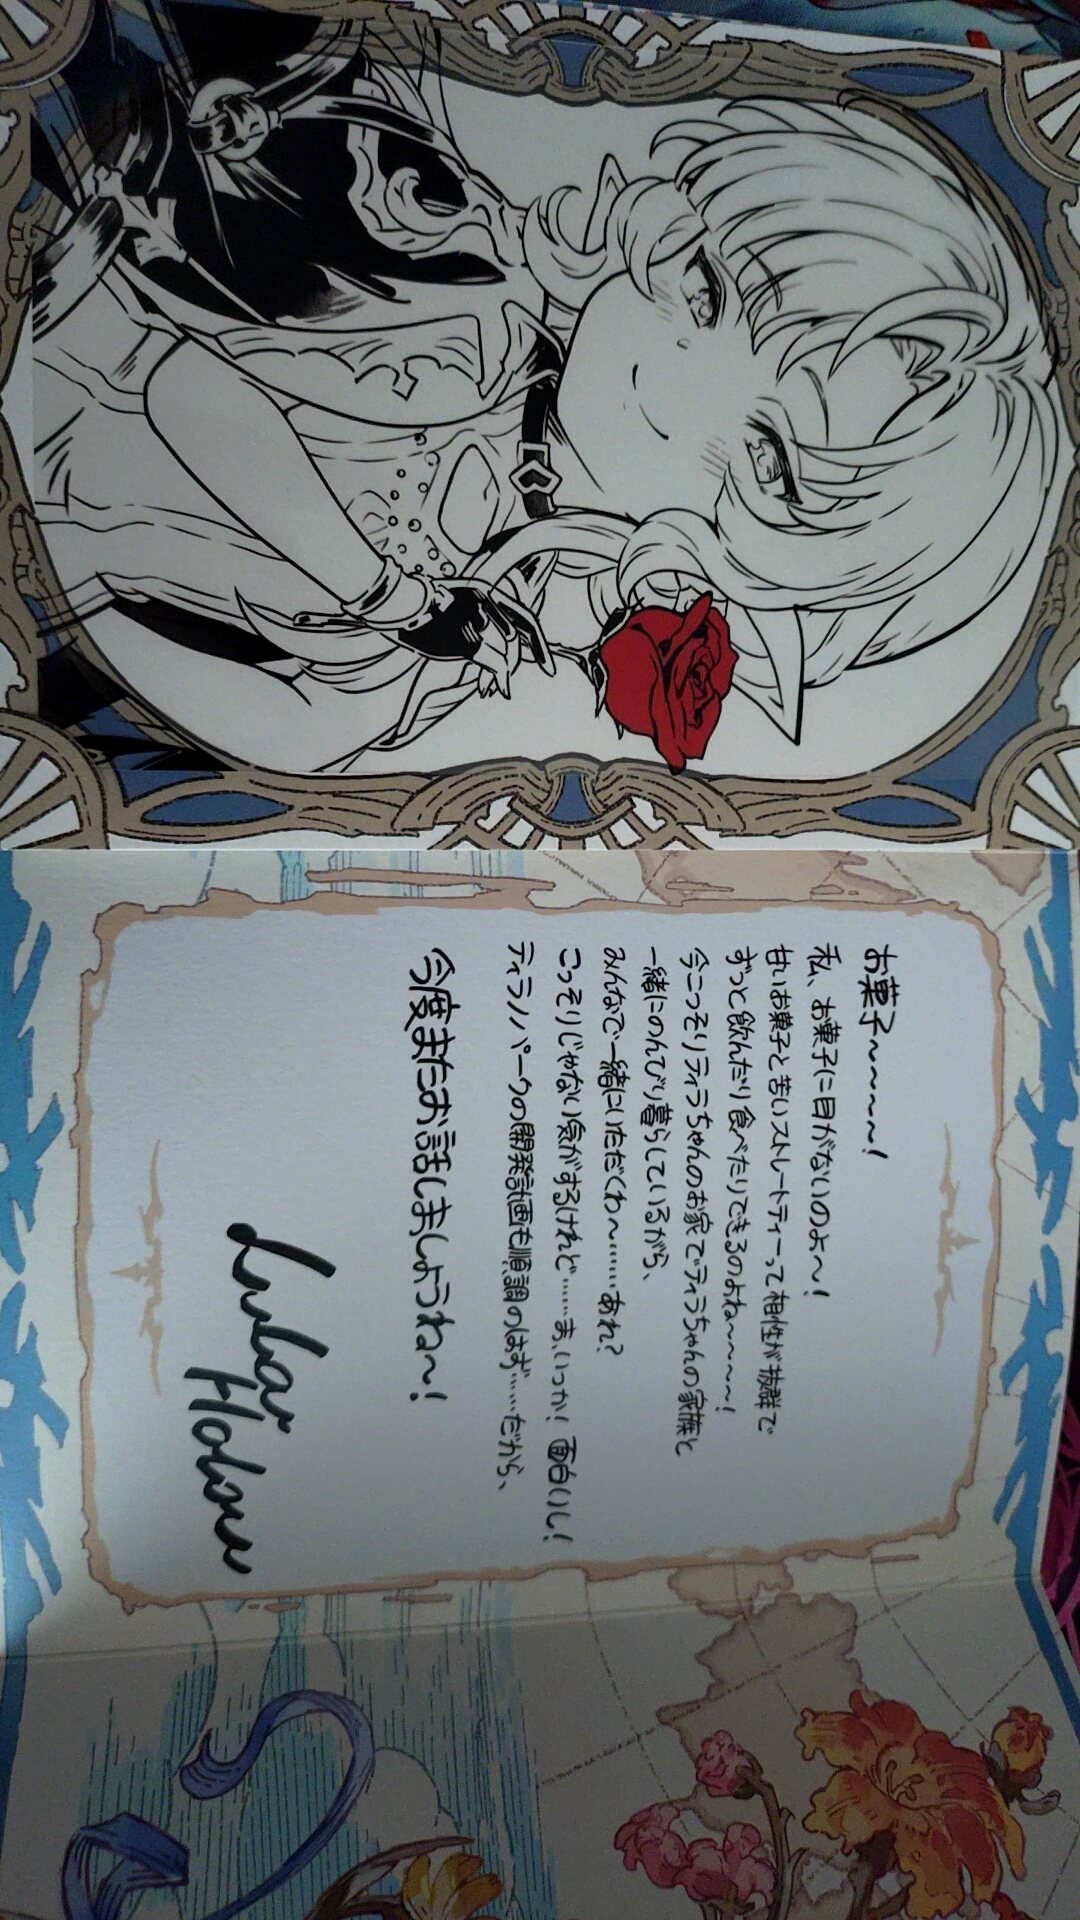 お菓子～～～～～!
私、お菓子に目がないのよ～!
甘いお菓子と苦いストレートティーって相性が抜群で
ずっと飲んだり食べたりできるのよね～～～～!
今こっそりティラちゃんのお家でティラちゃんの家族と
一緒にのんびり暮らしているから、
みんなで一緒にいただくわ～……あれ?
こっそりじゃない気がするけれど……ま、いっか! 面白いし!
ティラノパークの開発計画も順調のはず……だから、
今度またお話しましょうね～!